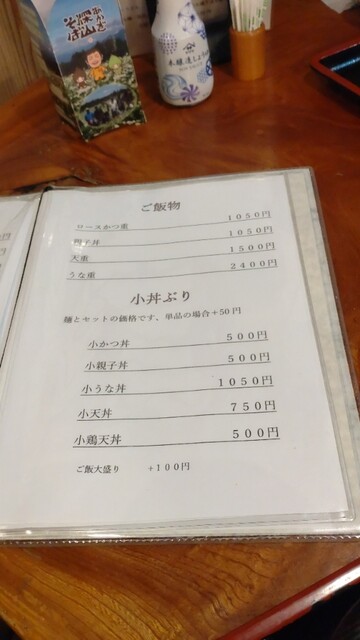 深山
そば
本醸造しょうゆ
ご飯物
ロースかつ重 1050円
親子丼 1050円
天重 1500円
うな重 2400円
小丼ぶり
麺とセットの価格です、単品の場合+50円
小かつ丼 500円
小親子丼 500円
小うな丼 1050円
小天丼 750円
小鶏天丼 500円
ご飯大盛り +100円